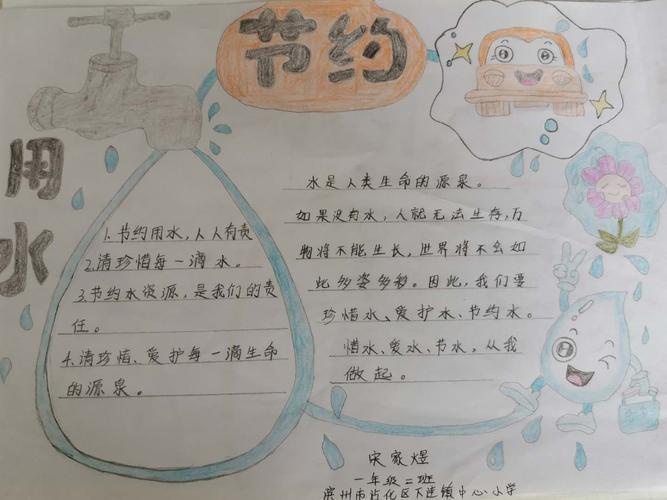 节约
用水
1.节约用水,人人有责
2.请珍惜每一滴水。
3.节约水资源,是我们的责
任。
4.请珍惜、爱护每一滴生命
的源泉。
水是人类生命的源泉。
如果没有水,人就无法生存,万
物将不能生长,世界将不会如
此多姿多彩。因此,我们要
珍惜水、爱护水、节约水。
惜水、爱水、节水,从我
做起。
宋家煜
一年级二班
滨州市沾化区下洼镇中心小学